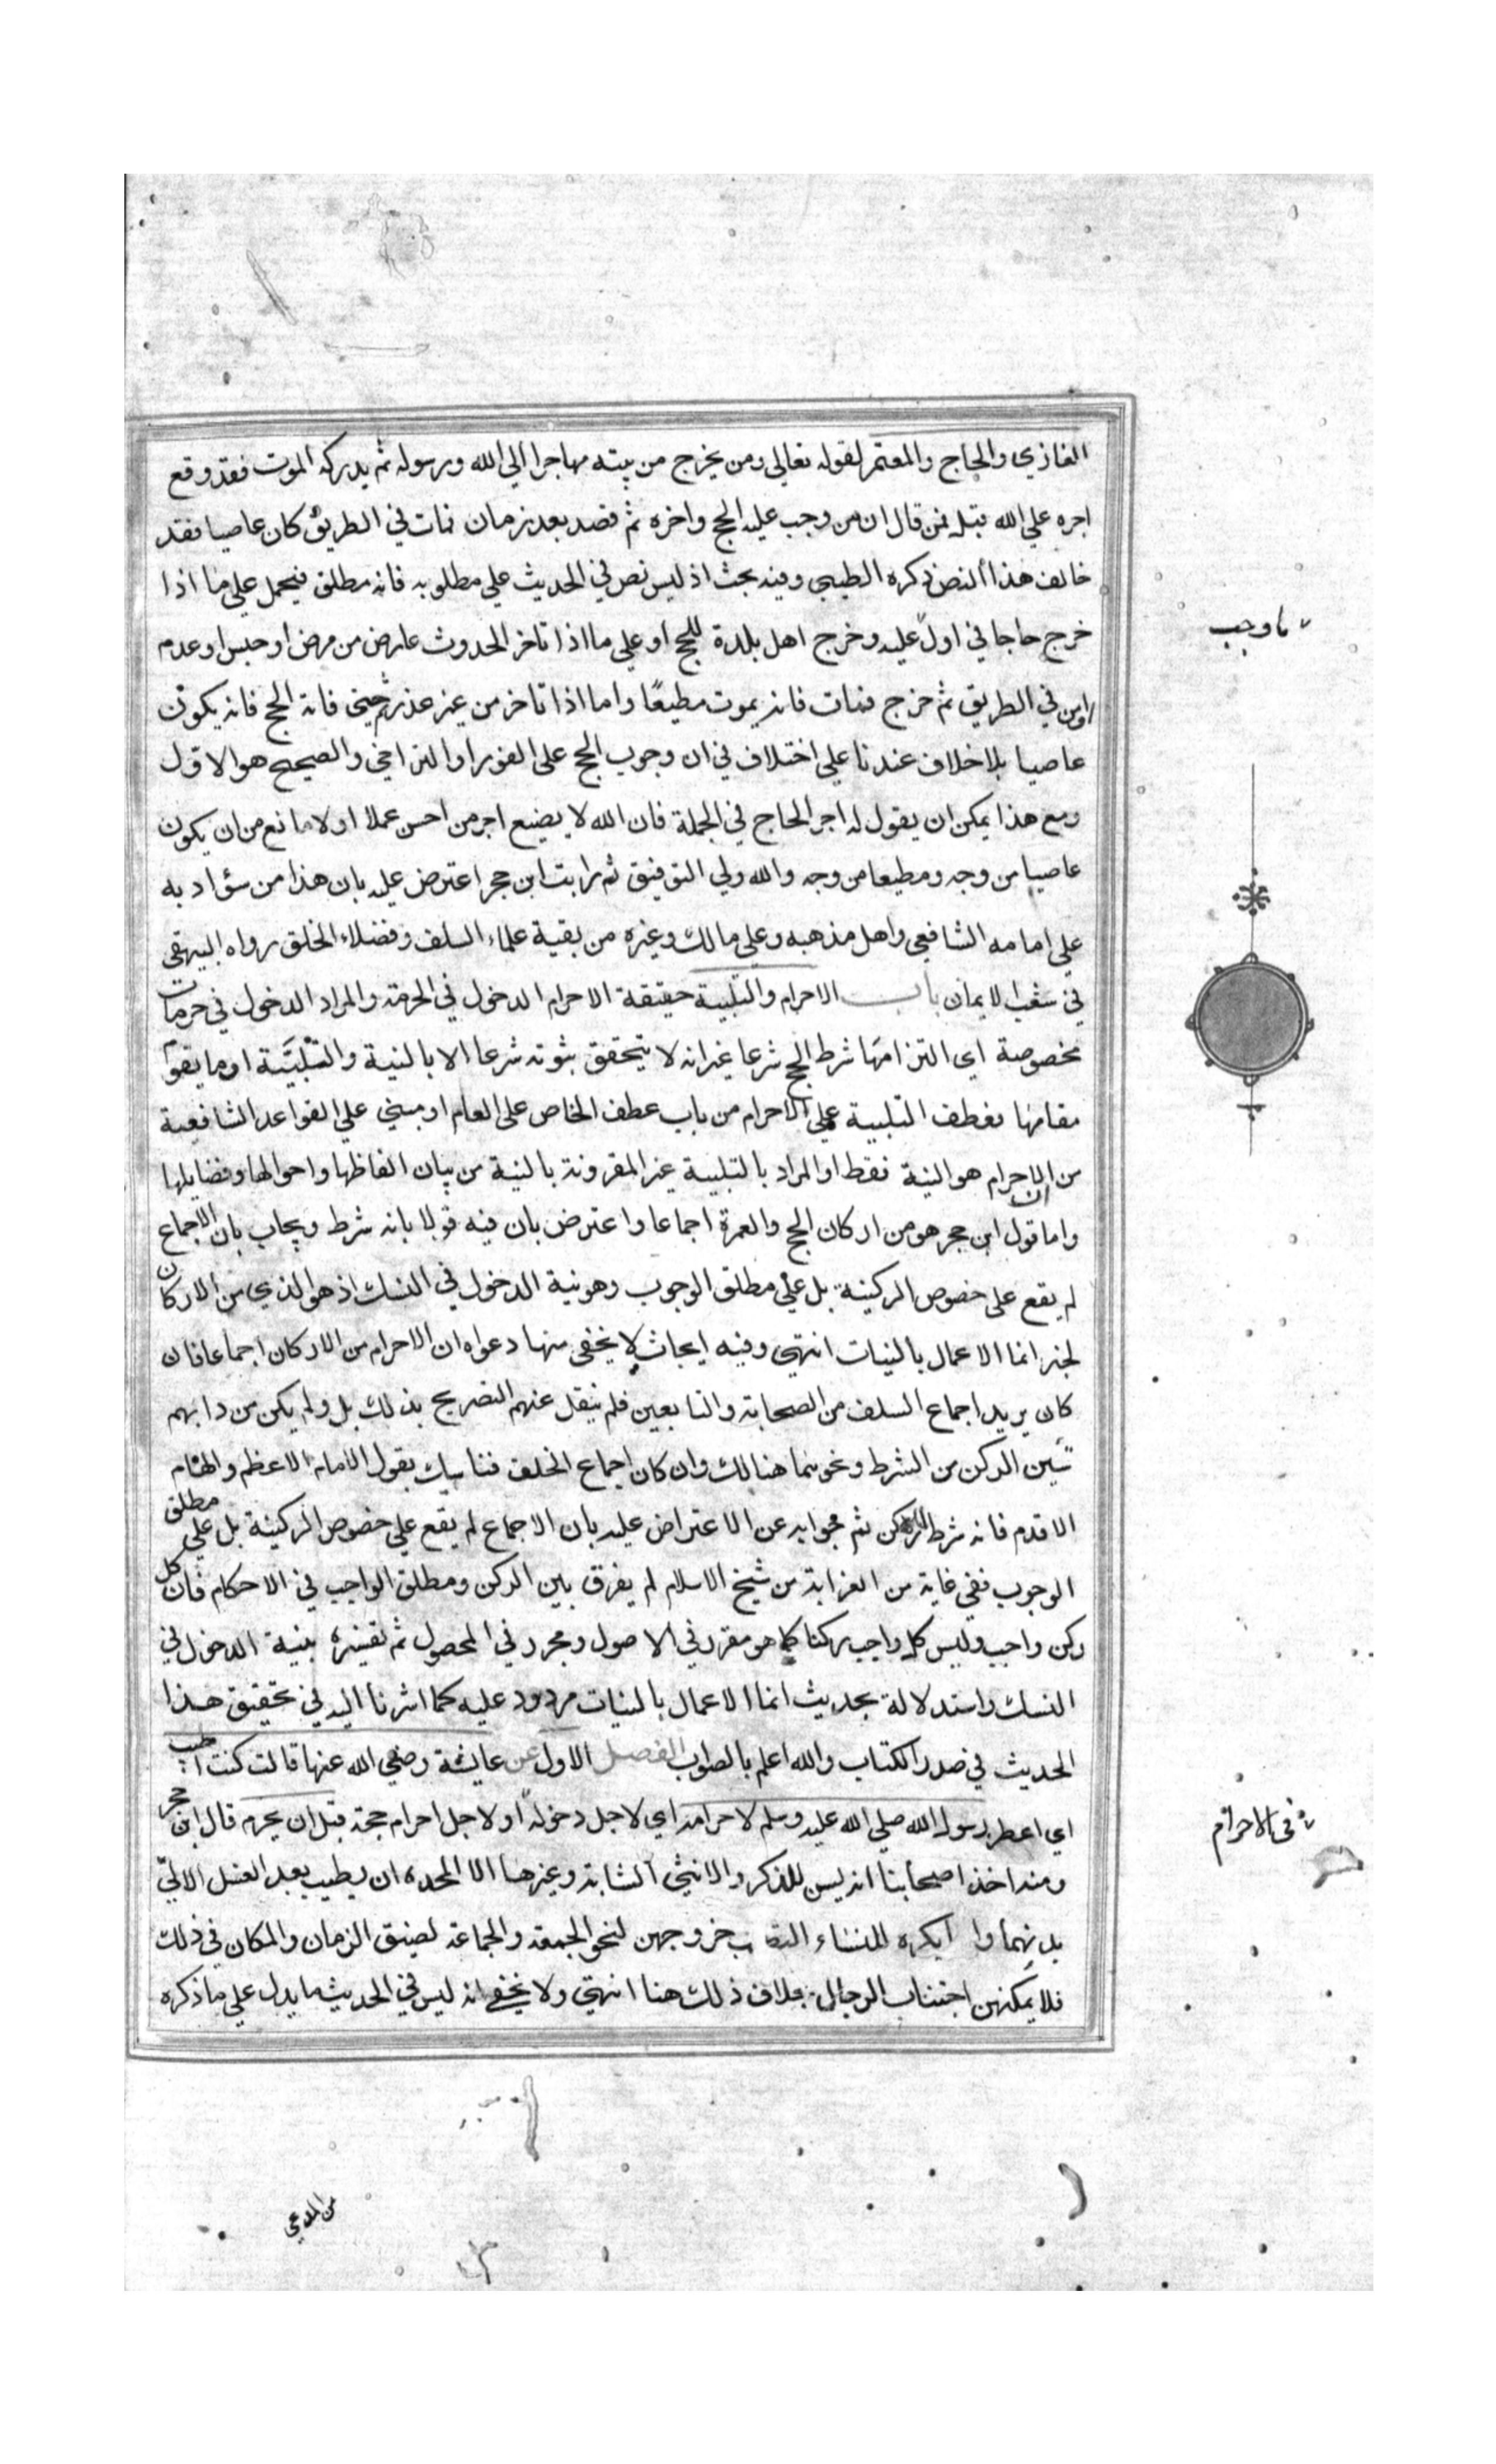 الغازي والحاج والمعتمر لقوله تعالى ومن يخرج من بيته مهاجرا الي الله ورسوله ثم يدركه الموت فقد وقع
اجره علي الله قيل فمن قال ان من وجب عليه الحج واخره ثم قصد بعد زمان فمات في الطريق كان عاصيا فقد
خالف هذا النص ذكره الطيبي وفيه بحث اذ ليس نص في الحديث علي مطلوبه فانه مطلق فيحمل علي ما اذا
خرج حاجا في اول عليه وخرج اهل بلدة للحج او علي ما اذا تاخر الحدوث عارض من مرض او حبس او عدم
امن في الطريق ثم خرج فمات فانه يموت مطيعًا واما اذا تاخر من غير عذر حتى فاته الحج فانه يكون
عاصيا بلا خلاف عندنا علي اختلاف في ان وجوب الحج على الفور او التراخي والصحيح هو الاول
ومع هذا يمكن ان يقول له اجر الحاج في الجملة فان الله لا يضيع اجر من احسن عملا او لا مانع من ان يكون
عاصيا من وجه ومطيعا من وجه والله ولي التوفيق ثم رايت ابن حجر اعترض عليه بان هذا من سؤ ادبه
علي امامه الشافعي واهل مذهبه وعلي مالك وغيره من بقية علماء السلف وفضلاء الخلق رواه البيهقي
في شعب الايمان باب الاحرام والتلبية حقيقة الاحرام الدخول في الحرمة والمراد الدخول في حرمات
مخصوصة اي التزامها شرط الحج شرعا غير انه لا يتحقق ثبوته شرعا الا بالنية والتلبيَّة او ما يقوم
مقامها فعطف التلبية علي الاحرام من باب عطف الخاص على العام او مبني علي القواعد الشافعية
من ان الاحرام هو النية فقط او المراد بالتلبية غير المقرونة بالنية من بيان الفاظها واحوالها وفضايلها
واما قول ابن حجر هو من اركان الحج والعمرة اجماعا واعترض بان فيه قولا بانه شرط ويجاب بان الاجماع
لم يقع على خصوص الركنية بل علي مطلق الوجوب وهو نية الدخول في النسك اذ هو الذي من الاركان
لخبر انما الاعمال بالنيات انتهى وفيه ابحاث لا يخفى منها دعواه ان الاحرام من الاركان اجماعا فان
كان يريد اجماع السلف من الصحابة والتابعين فلم ينقل عنهم التصريح بذلك بل ولم يكن من دابهم
تبين الركن من الشرط ونحوهما هنالك وان كان اجماع الخلف فنا بيك بقول الامام الاعظم والهمام
الاقدم فانه شرط لا ركن ثم جوابه عن الاعتراض عليه بان الاجماع لم يقع علي خصوص الركنية بل علي مطلق
الوجوب ففي غاية من الغرابة من شيخ الاسلام لم يفرق بين الركن ومطلق الواجب في الاحكام فان كل
ركن واجب وليس كل واجب ركنا كما هو مقرر في الاصول ومحرر في المحصول ثم تفسيره بنية الدخول في
النسك واستدلالة بحديث انما الاعمال بالنيات مردود عليه كما اشرنا اليه في تحقيق هذا
الحديث في صدر الكتاب والله اعلم بالصواب الفصل الاول عن عايشة رضي الله عنها قالت كنت اطيب
اي اعطر رسول الله صلي الله عليه وسلم لاحرامه اي لاجل دخوله او لاجل احرام حجة قبل ان يحرم قال ابن حجر
ومنه اخذ اصحابنا انه يسن للذكر والانثي الشابة وغيرها الا المحده ان يطيب بعد الغسل الاتي
بدنهما وا يكره للنساء خروجهن لنحو الجمعة والجماعة لضيق الزمان والمكان في ذلك
فلا يمكنهن اجتناب الرجال بخلاف ذلك هنا انتهي ولا يخفي انه ليس في الحديث ما يدل علي ما ذكره
ما وجب
في الاحرام
من المدعي